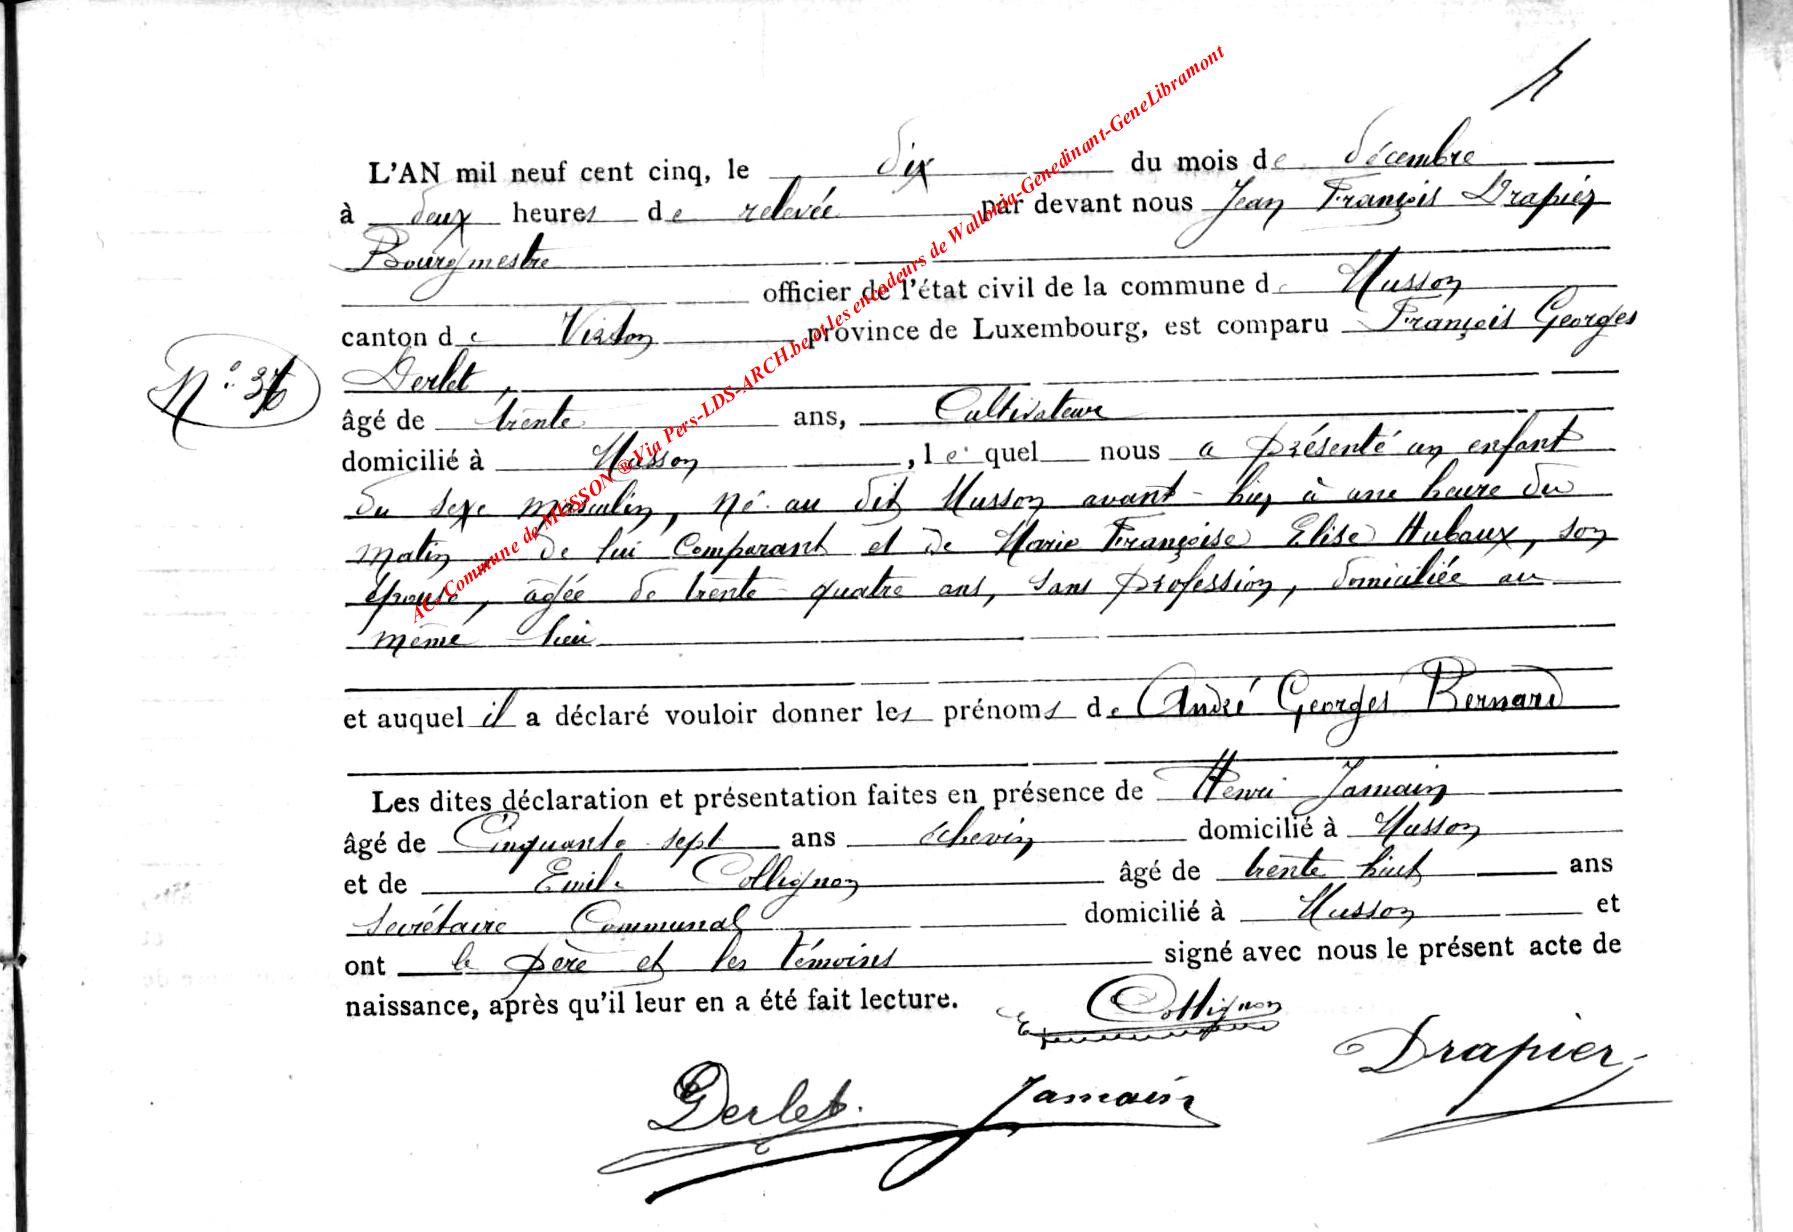 L'AN mil neuf cent cinq, le dix du mois de décembre
à deux heures de relevée par devant nous Jean François Drapier
Bourgmestre
officier de l'état civil de la commune de Musson
canton de Virton province de Luxembourg, est comparu François Georges
Derlet,
N°
âgé de trente ans, Cultivateur
domicilié à Musson, lequel nous a présenté un enfant
du sexe masculin, né au dit Musson avant-hier à une heure du
matin de lui Comparant et de Marie Françoise Elise Hubaux, son
épouse, agée de trente-quatre ans, sans profession, domiciliée au
même lieu
et auquel il a déclaré vouloir donner les prénoms de André Georges Bernard
Les dites déclaration et présentation faites en présence de Henri Jamain
âgé de Cinquante sept ans échevin domicilié à Musson
et de Emile Collignon âgé de trente huit ans
Secrétaire Communal domicilié à Musson et
ont le père et les témoins signé avec nous le présent acte de
naissance, après qu'il leur en a été fait lecture.
E Collignon
Drapier
Derlet Jamain
AC. Commune de MUSSON ® Via Pers-LDS-ARCH.be et les encodeurs de Wallonia-Genedinant-GeneLibramont